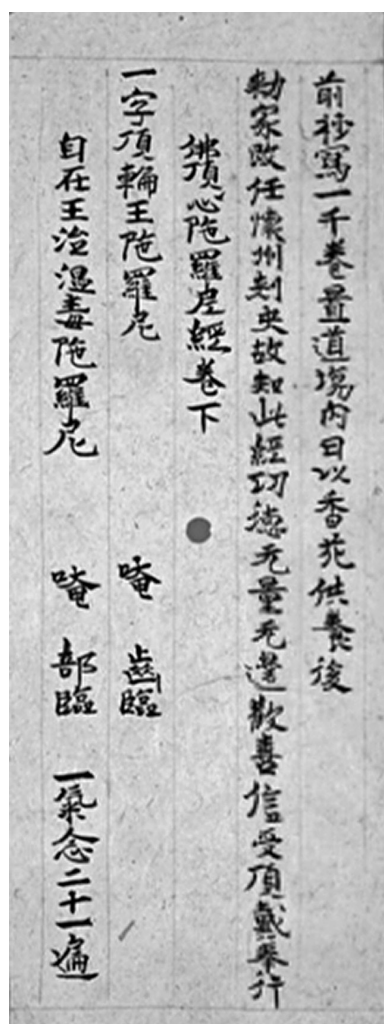 前抄寫一千卷置道場內日以香花供養後
勑家改任懷州刺史故知此經功德无量无邊歡喜信受頂戴奉行
佛頂心陁羅尼經卷下
一字頂輪王陁羅尼　唵　齒臨
自在王治温毒陁羅尼　唵　部臨　一氣念二十一遍